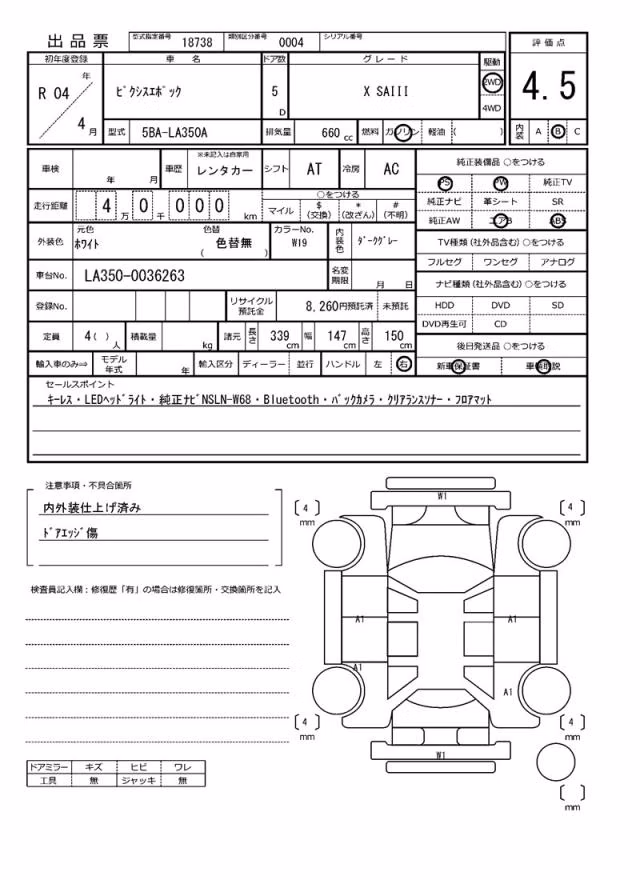 出品票 型式指定番号 18738 類別区分番号 0004 シリアル番号
評価点
4.5
初年度登録 車名 ドア数 グレード 駆動
R 04 年 4 月 ピクシスエポック 5 D X SAIII 2WD 4WD
型式 5BA-LA350A 排気量 660 cc 燃料 ガソリン 軽油 ( )
内装 A B C
車検 年 月 車歴 ※未記入は自家用 レンタカー シフト AT 冷房 AC
純正装備品 ○をつける
PS PW 純正TV
純正ナビ 革シート SR
純正AW エアB ABS
走行距離 4 万 0 千 0 0 0 km
○をつける
マイル $ (交換) * (改ざん) # (不明)
外装色 元色 ホワイト 色替 色替無 ( ) カラーNo. W19 内装色 ダークグレー
TV種類 (社外品含む) ○をつける
フルセグ ワンセグ アナログ
車台No. LA350-0036263 名変期限 月 日
ナビ種類 (社外品含む) ○をつける
HDD DVD SD
DVD再生可 CD
登録No. リサイクル預託金 8,260円預託済 未預託
定員 4( ) 人 積載量 kg 諸元 長さ 339 cm 幅 147 cm 高さ 150 cm
後日発送品 ○をつける
新車保証書 車輌取説
輸入車のみ⇒ モデル年式 年 輸入区分 ディーラー 並行 ハンドル 左 右
セールスポイント
キーレス・LEDヘッドライト・純正ナビNSLN-W68・Bluetooth・バックカメラ・クリアランスソナー・フロアマット
注意事項・不具合箇所
内外装仕上げ済み
ドアエッジ傷
検査員記入欄:修復歴「有」の場合は修復箇所・交換箇所を記入
W1
4 mm
4 mm
A1
A1
A1
A1
4 mm
4 mm
W1
mm
ドアミラー キズ ヒビ ワレ
工具 無 ジャッキ 無